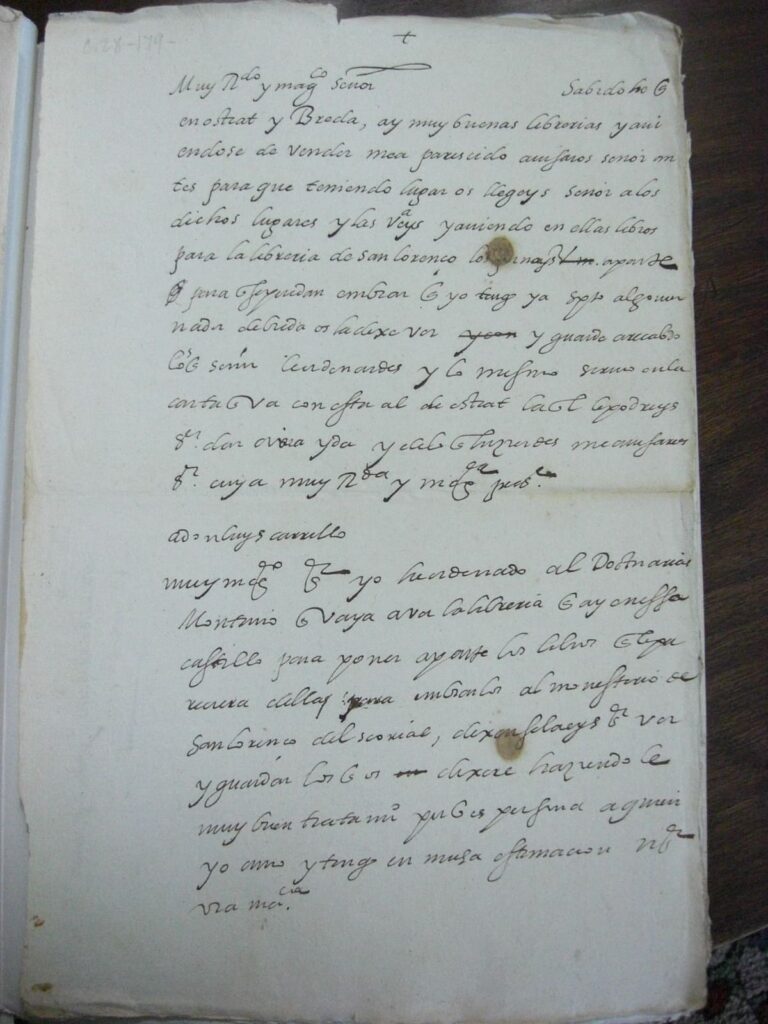 C.28-179-
+
Muy R.do y mag.co Señor Sabido he q̃
en ostrat y Breda, ay muy buenas librerias y avi
endose de vender mea parescido avisaros señor an
tes para que teniendo lugar os llegueys señor a los
dichos lugares y las veays y aviendo en ellas libros
para la libreria de san lorenco los aparte
para q̃ se puedan embiar q̃ yo tengo ya
nador de breda os la dexe ver y guarde a recabdo
los q̃ señor y lo mesmo servio en la
carta q̃ va con esta al de ostrat la q̃l le podreys
s.r dar y de lo q̃ hizierdes me avisares
s.r cuya muy R.da y mag.ca pers.
a don luys carrillo
muy mag.co s.r yo he ordenado al Doctor arias
Montano q̃ vaya a ver la libreria q̃ ay en esse
castillo para poner aparte los libros q̃ le pa
reciera dellas para embiarlos al monesterio de
San lorenco del scorial, dexareselaeys s.r ver
y guardar los q̃ os dixere haziendole
muy buen tratam.o porq̃ es persona a quien
yo amo y tengo en mucha estimacion n.s.r
v.ra ma.cia.